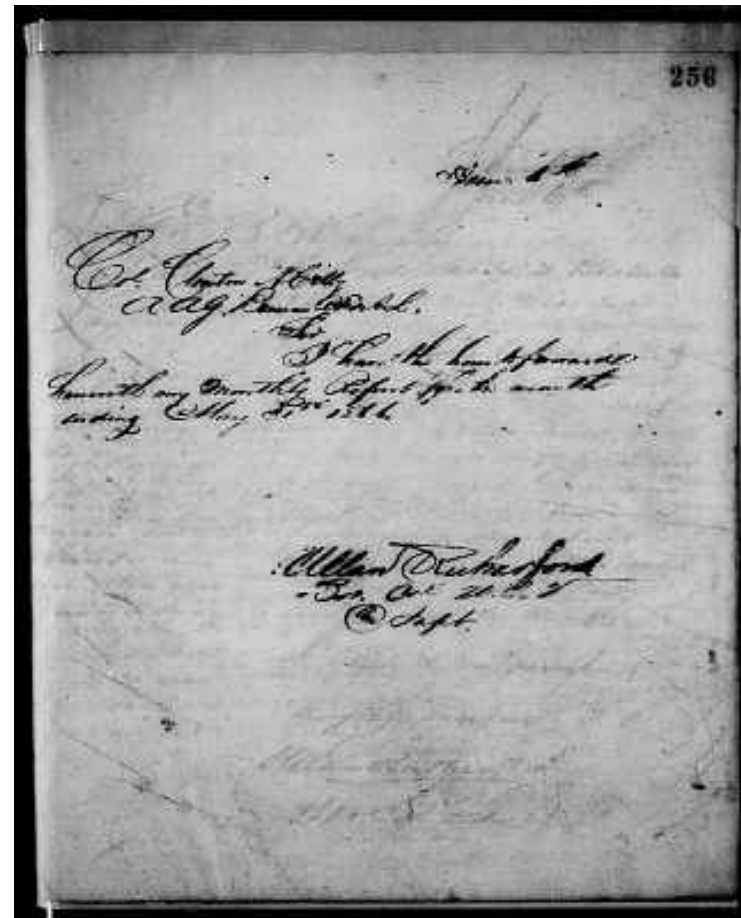 256
June
Col. Clinton A Cilley
A A G.
Sir
I have the honor to forward
herewith my Monthly Report for the month
ending May 31st 1866
Allan Rutherford
Bvt. Col.
Supt.